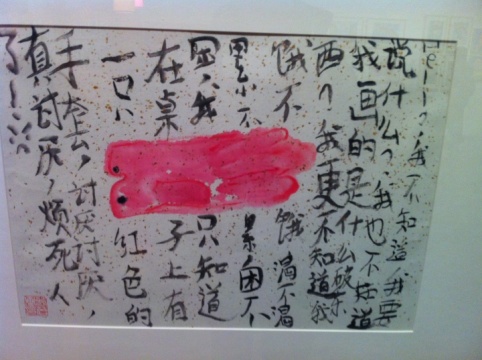 我不知道,我要
说什么?,我也不知道
我画的是什么破东
西?我更不知道我
饿不饿渴不渴
累不累,困不
困,我只知道
在桌子上有
一只红色的
手套,讨厌讨厌,
真讨厌,烦死人
了